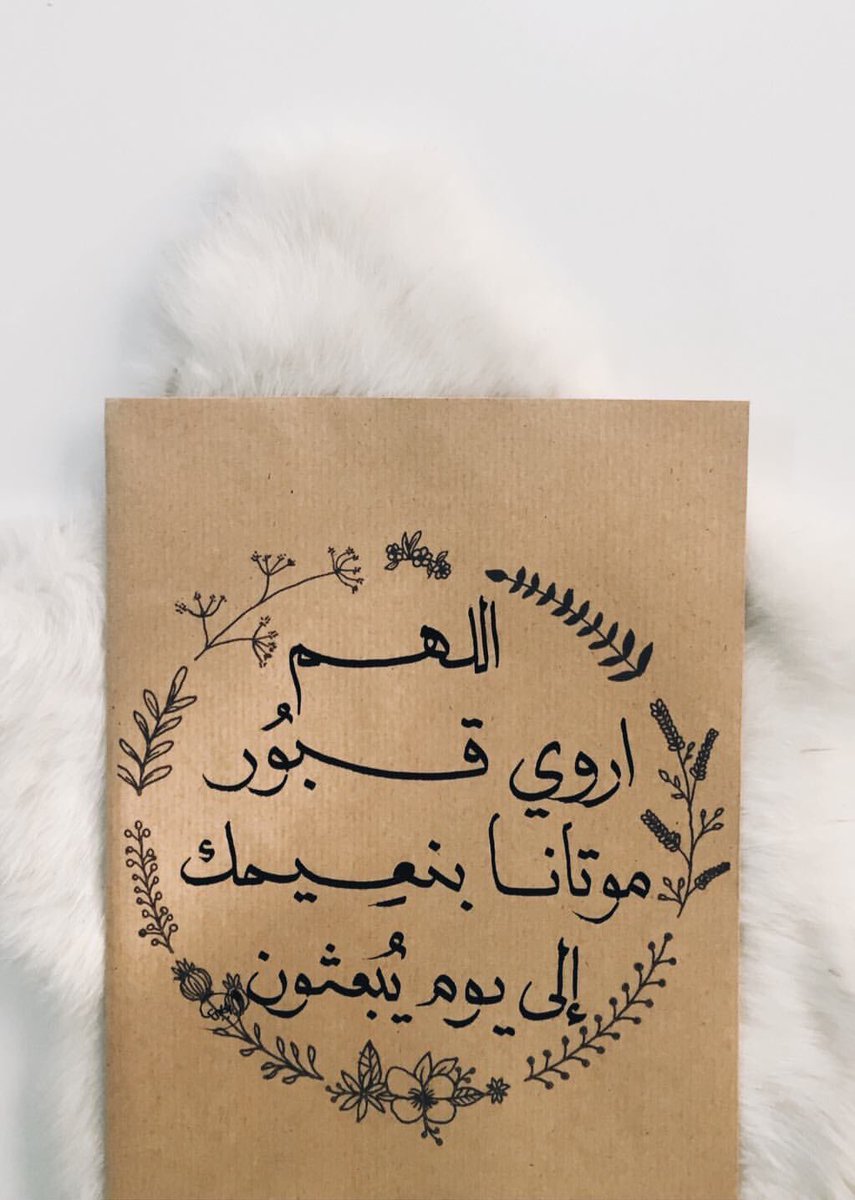 اللهم
اروي قبُور
موتانا بنعِيمك
إلى يوم يُبعثون